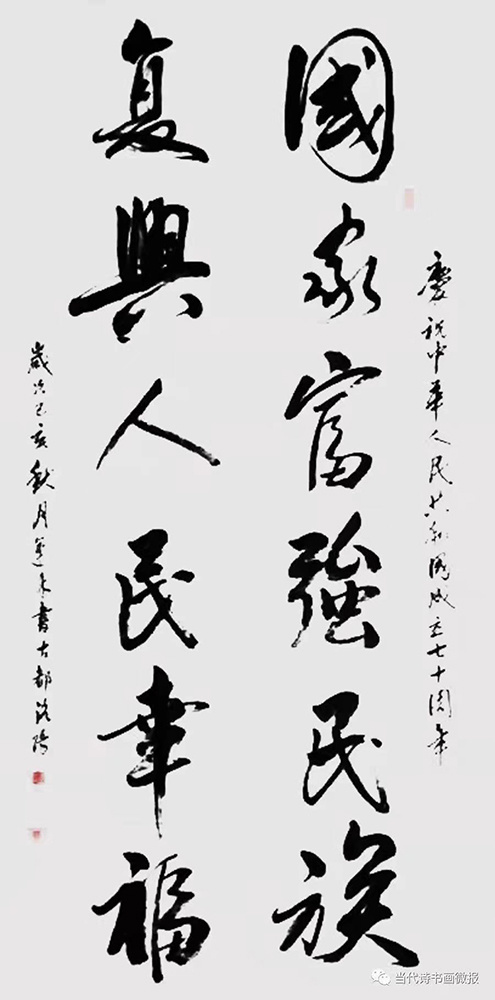 慶祝中華人民共和國成立七十周年
國家富強民族
复興人民幸福
歲次己亥秋月建来書古都洛陽
当代诗书画微报